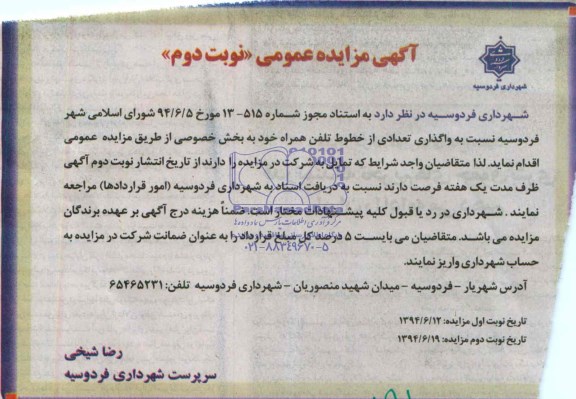 آگهی مزایده عمومی «نوبت دوم»
شهرداری فردوسیه
شهرداری فردوسیه در نظر دارد به استناد مجوز شماره ۵۱۵- ۱۳ مورخ ۹۴/۶/۵ شورای اسلامی شهر
فردوسیه نسبت به واگذاری تعدادی از خطوط تلفن همراه خود به بخش خصوصی از طریق مزایده عمومی
اقدام نماید. لذا متقاضیان واجد شرایط که تمایل به شرکت در مزایده را دارند از تاریخ انتشار نوبت دوم آگهی
ظرف مدت یک هفته فرصت دارند نسبت به دریافت اسناد به شهرداری فردوسیه (امور قراردادها) مراجعه
نمایند . شهرداری در رد یا قبول کلیه پیشنهادات مختار است. ضمناً هزینه درج آگهی بر عهده برندگان
مزایده می باشد. متقاضیان می بایست ۵ درصد کل مبلغ قرارداد را به عنوان ضمانت شرکت در مزایده به
۰۲۱-۸۸۳۴۹۶۷۰-۵
حساب شهرداری واریز نمایند.
آدرس شهریار - فردوسیه - میدان شهید منصوریان - شهرداری فردوسیه تلفن: ۶۵۴۶۵۲۳۱
تاریخ نوبت اول مزایده: ۱۳۹۴/۶/۱۲
تاریخ نوبت دوم مزایده: ۱۳۹۴/۶/۱۹
رضا شیخی
سرپرست شهرداری فردوسیه